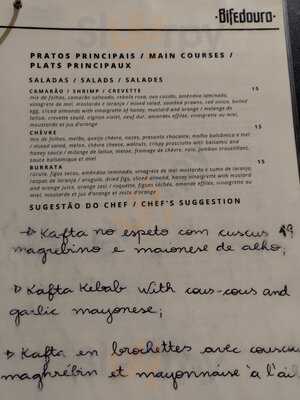 Bifedouro.
PRATOS PRINCIPAIS / MAIN COURSES /
PLATS PRINCIPAUX
SALADAS / SALADS / SALADES
CAMARÃO / SHRIMP / CREVETTE 15
mix de folhas, camarão salteado, rabano rosa, ovo cozido, amêndoa laminada,
vinagrete de mel, mostarda e laranja / mixed salad, sautéed prawns, red onion, boiled
egg, sliced almonds with vinaigrette of honey, mustard and orange / mélange de
laitue, crevette sauté, oignon violet, oeuf dur, amandes effilée, vinaigrette au miel,
moustarde et jus d'orange
CHÈVRE 15
mix de folhas, melão, queijo chèvre, nozes, presunto crocante, molho balsâmico e mel
/ mixed salad, melon, chèvre cheese, walnuts, crispy prosciutto with balsamic and
honey sauce / mélange de laitue, melon, fromage de chèvre, noix, jambon croustillant,
sauce balsamique et miel
BURRATA 15
rúcula, figos secos, amêndoa laminada, vinagrete de mel mostarda e sumo de laranja,
raspas de laranja / arugula, dried figs, sliced almond, honey vinaigrette with mustard
and orange juice, orange zest / roquette, figues séchés, amande effilée, vinaigrette au
miel, moutarde et jus d'orange et zeste d'orange
SUGESTÃO DO CHEF / CHEF'S SUGGESTION
→ Kafta no espeto com cuscus 19
magrebino e maionese de alho;
▷ Kafta Kebab with cous-cous and
garlic mayonese;
▷ Kafta en brochettes avec couscous
maghrébin et mayonnaise à l'ail